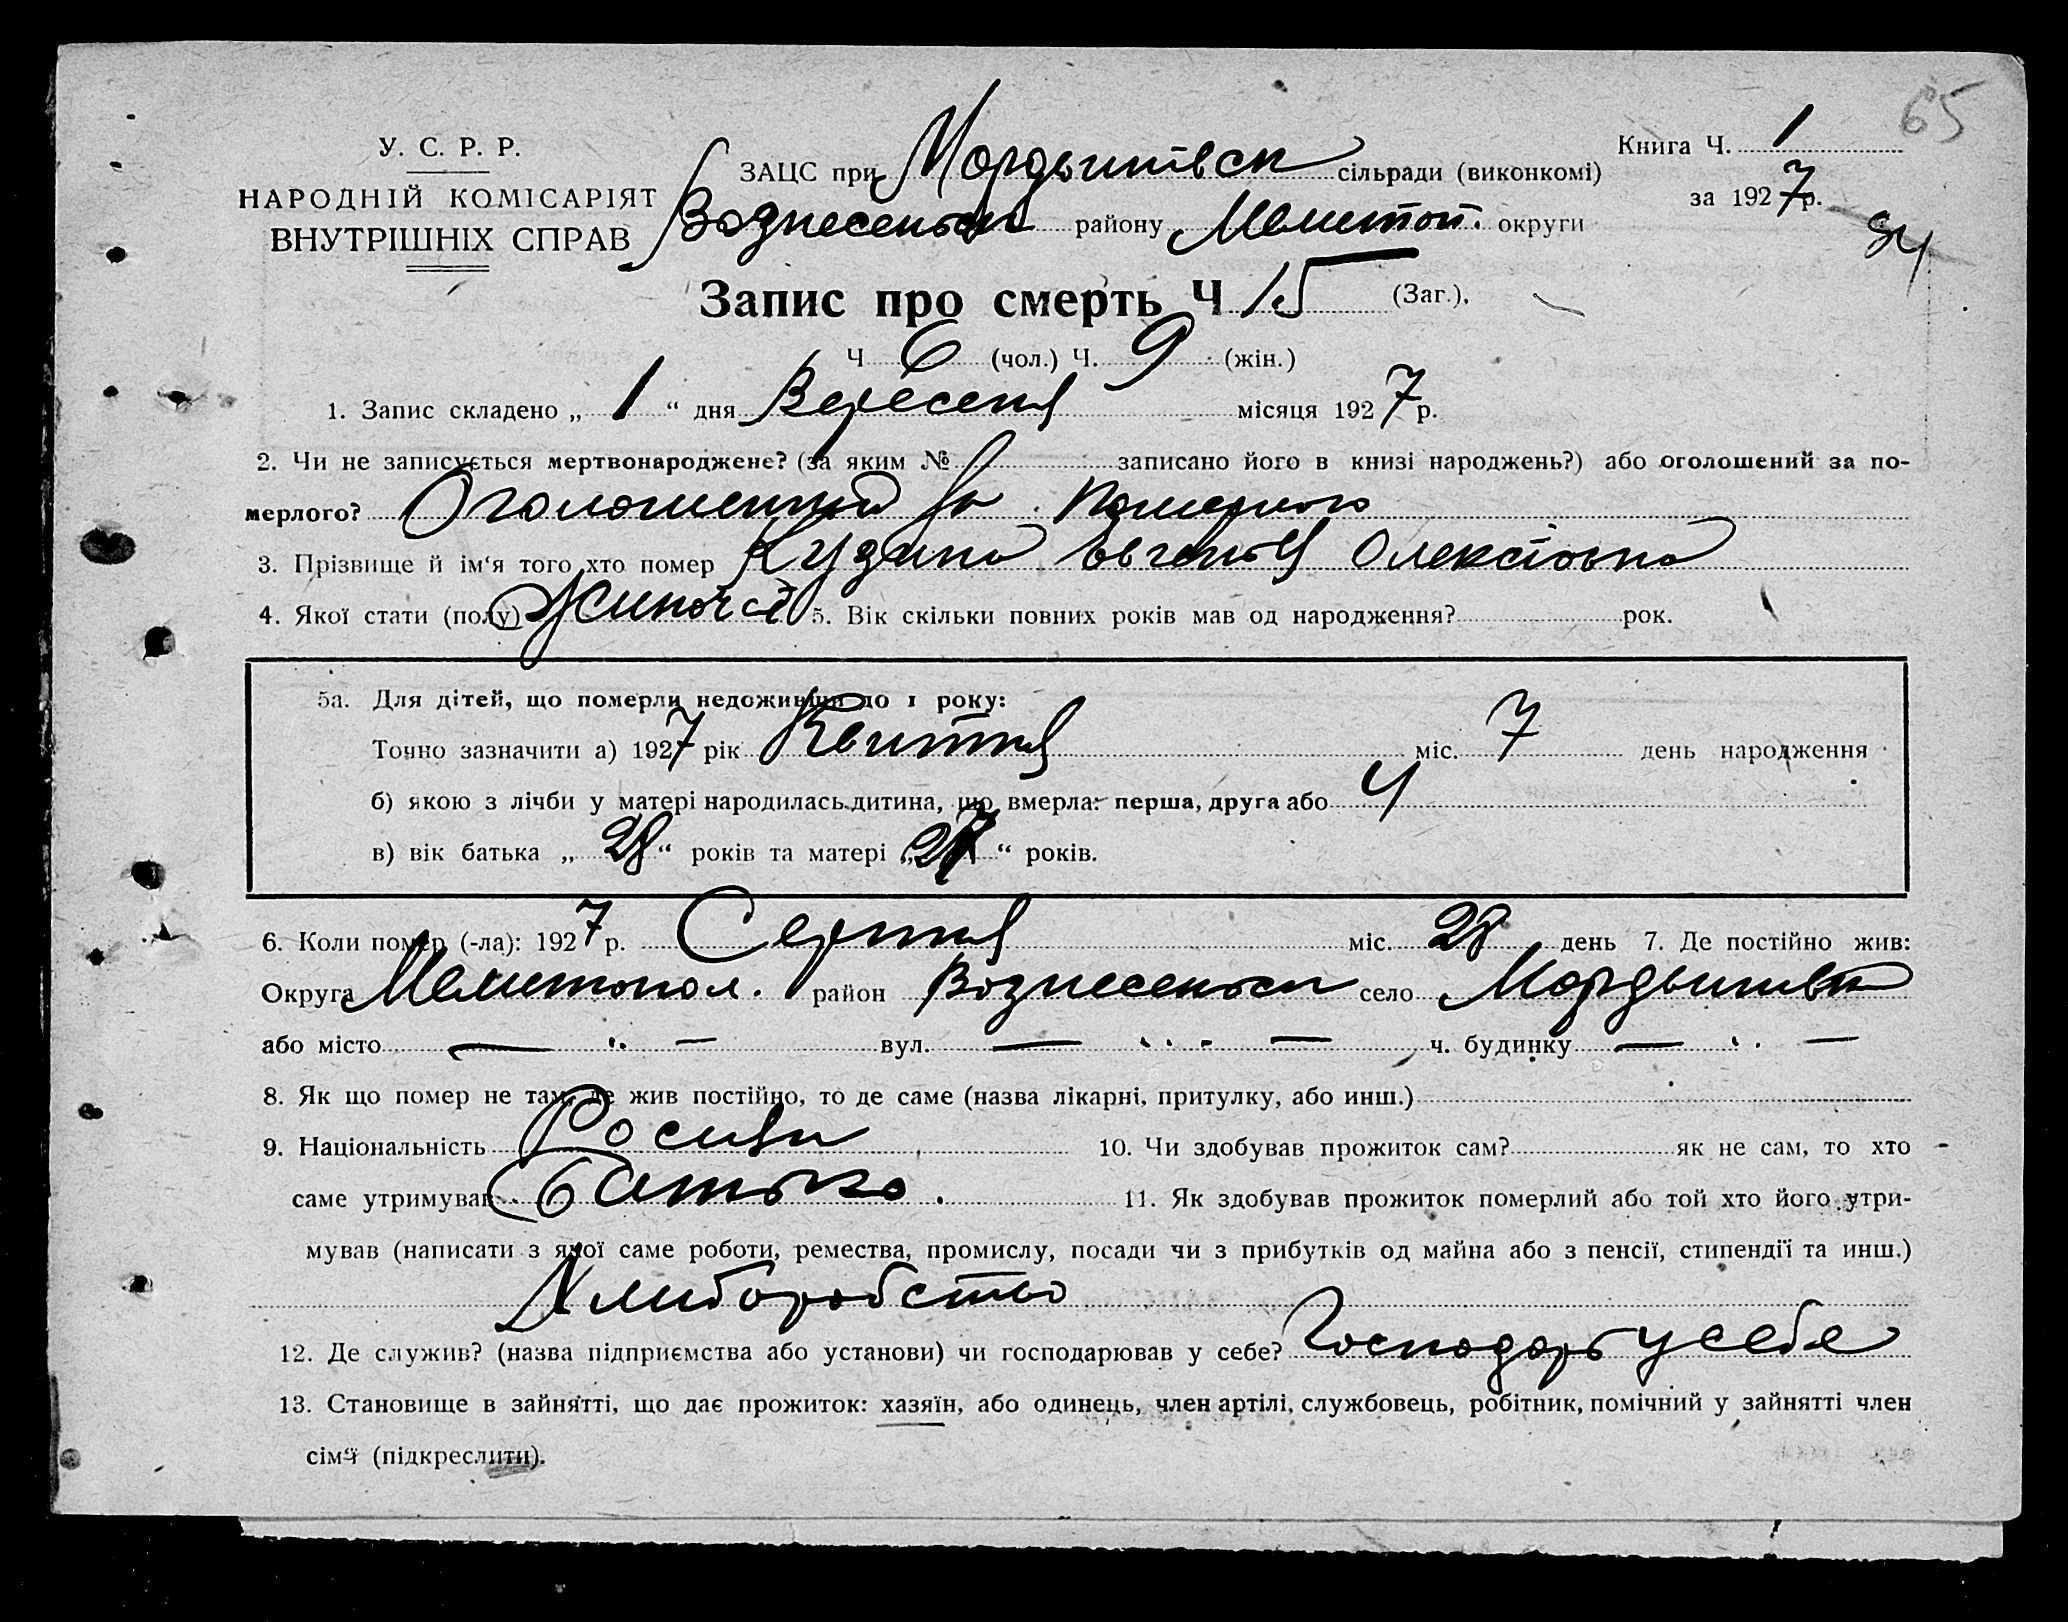 65
У. С. Р. Р.
НАРОДНІЙ КОМІСАРІЯТ
ВНУТРІШНІХ СПРАВ
ЗАЦС при Мордвинівск сільради (виконкомі)
Вознесенськ району Мелитоп. округи
Книга Ч. 1
за 1927 р.
Запис про смерть Ч 15 (Заг.),
Ч 6 (чол.) Ч. 9 (жін.)
1. Запис складено „ 1 “ дня Вересеня місяця 1927 р.
2. Чи не записується мертвонароджене? (за яким № записано його в книзі народжень?) або оголошений за по-
мерлого? Оголошенний за померлого
3. Прізвище й ім‘я того хто помер Кузина Евгенья Олексіовна
4. Якої стати (полу) Жиночей 5. Вік скільки повних років мав од народження? рок.
5а. Для дітей, що померли недоживши до 1 року:
Точно зазначити а) 1927 рік Квитня міс. 7 день народження
б) якою з лічби у матері народилась дитина, що вмерла: перша, друга або 4
в) вік батька „ 28 “ років та матері „ 27 “ років.
6. Коли помер (-ла): 1927 р. Серпня міс. 28 день 7. Де постійно жив:
Округа Мелитопол. район Вознесеньск село Мордвинівк
або місто — „ — вул. — „ — ч. будинку — „ —
8. Як що помер не там, де жив постійно, то де саме (назва лікарні, притулку, або инш.)
9. Національність Росиян 10. Чи здобував прожиток сам? як не сам, то хто
саме утримував Батько. 11. Як здобував прожиток померлий або той хто його утри-
мував (написати з якої саме роботи, ремества, промислу, посади чи з прибутків од майна або з пенсії, стипендії та инш.)
Хлиборобство
12. Де служив? (назва підприємства або установи) чи господарював у себе? Господарь у себе
13. Становище в зайнятті, що дає прожиток: хазяїн, або одинець, член артілі, службовець, робітник, помічний у зайнятті член
сім‘ї (підкреслити).